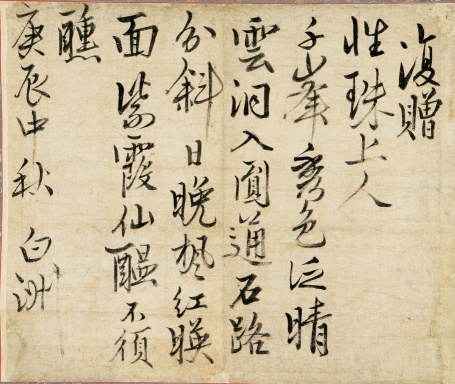 復贈
性珠上人
千峯秀色泛晴
雲洞入圓通石路
分斜日晚楓紅暎
面紫霞仙醞不須
醺
庚辰中秋 白洲